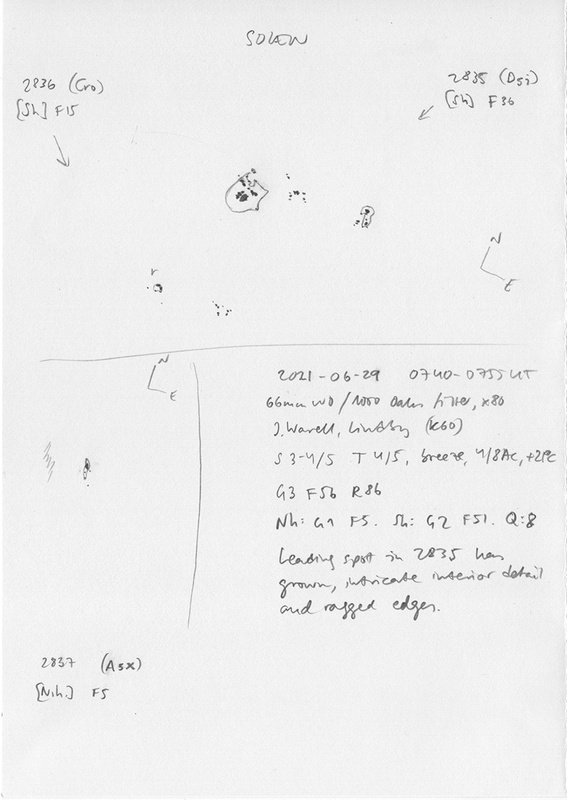 SOLEN
2836 (Cro)
[Sh] F15
2835 (Dsi)
[Sh] F36
N
E
r
N
E
2021-06-29 0740-0755 UT
66mm WO / 1000 Oaks filter, x80
J. Warell, Lindby (K60)
S 3-4/5 T 4/5, breeze, 4/8Ac, +21°C
G3 F56 R86
Nh: G1 F5. Sh: G2 F51. Q:8
Leading spot in 2835 has
grown, intricate interior detail
and ragged edges.
2837 (Asx)
[N.h.] F5